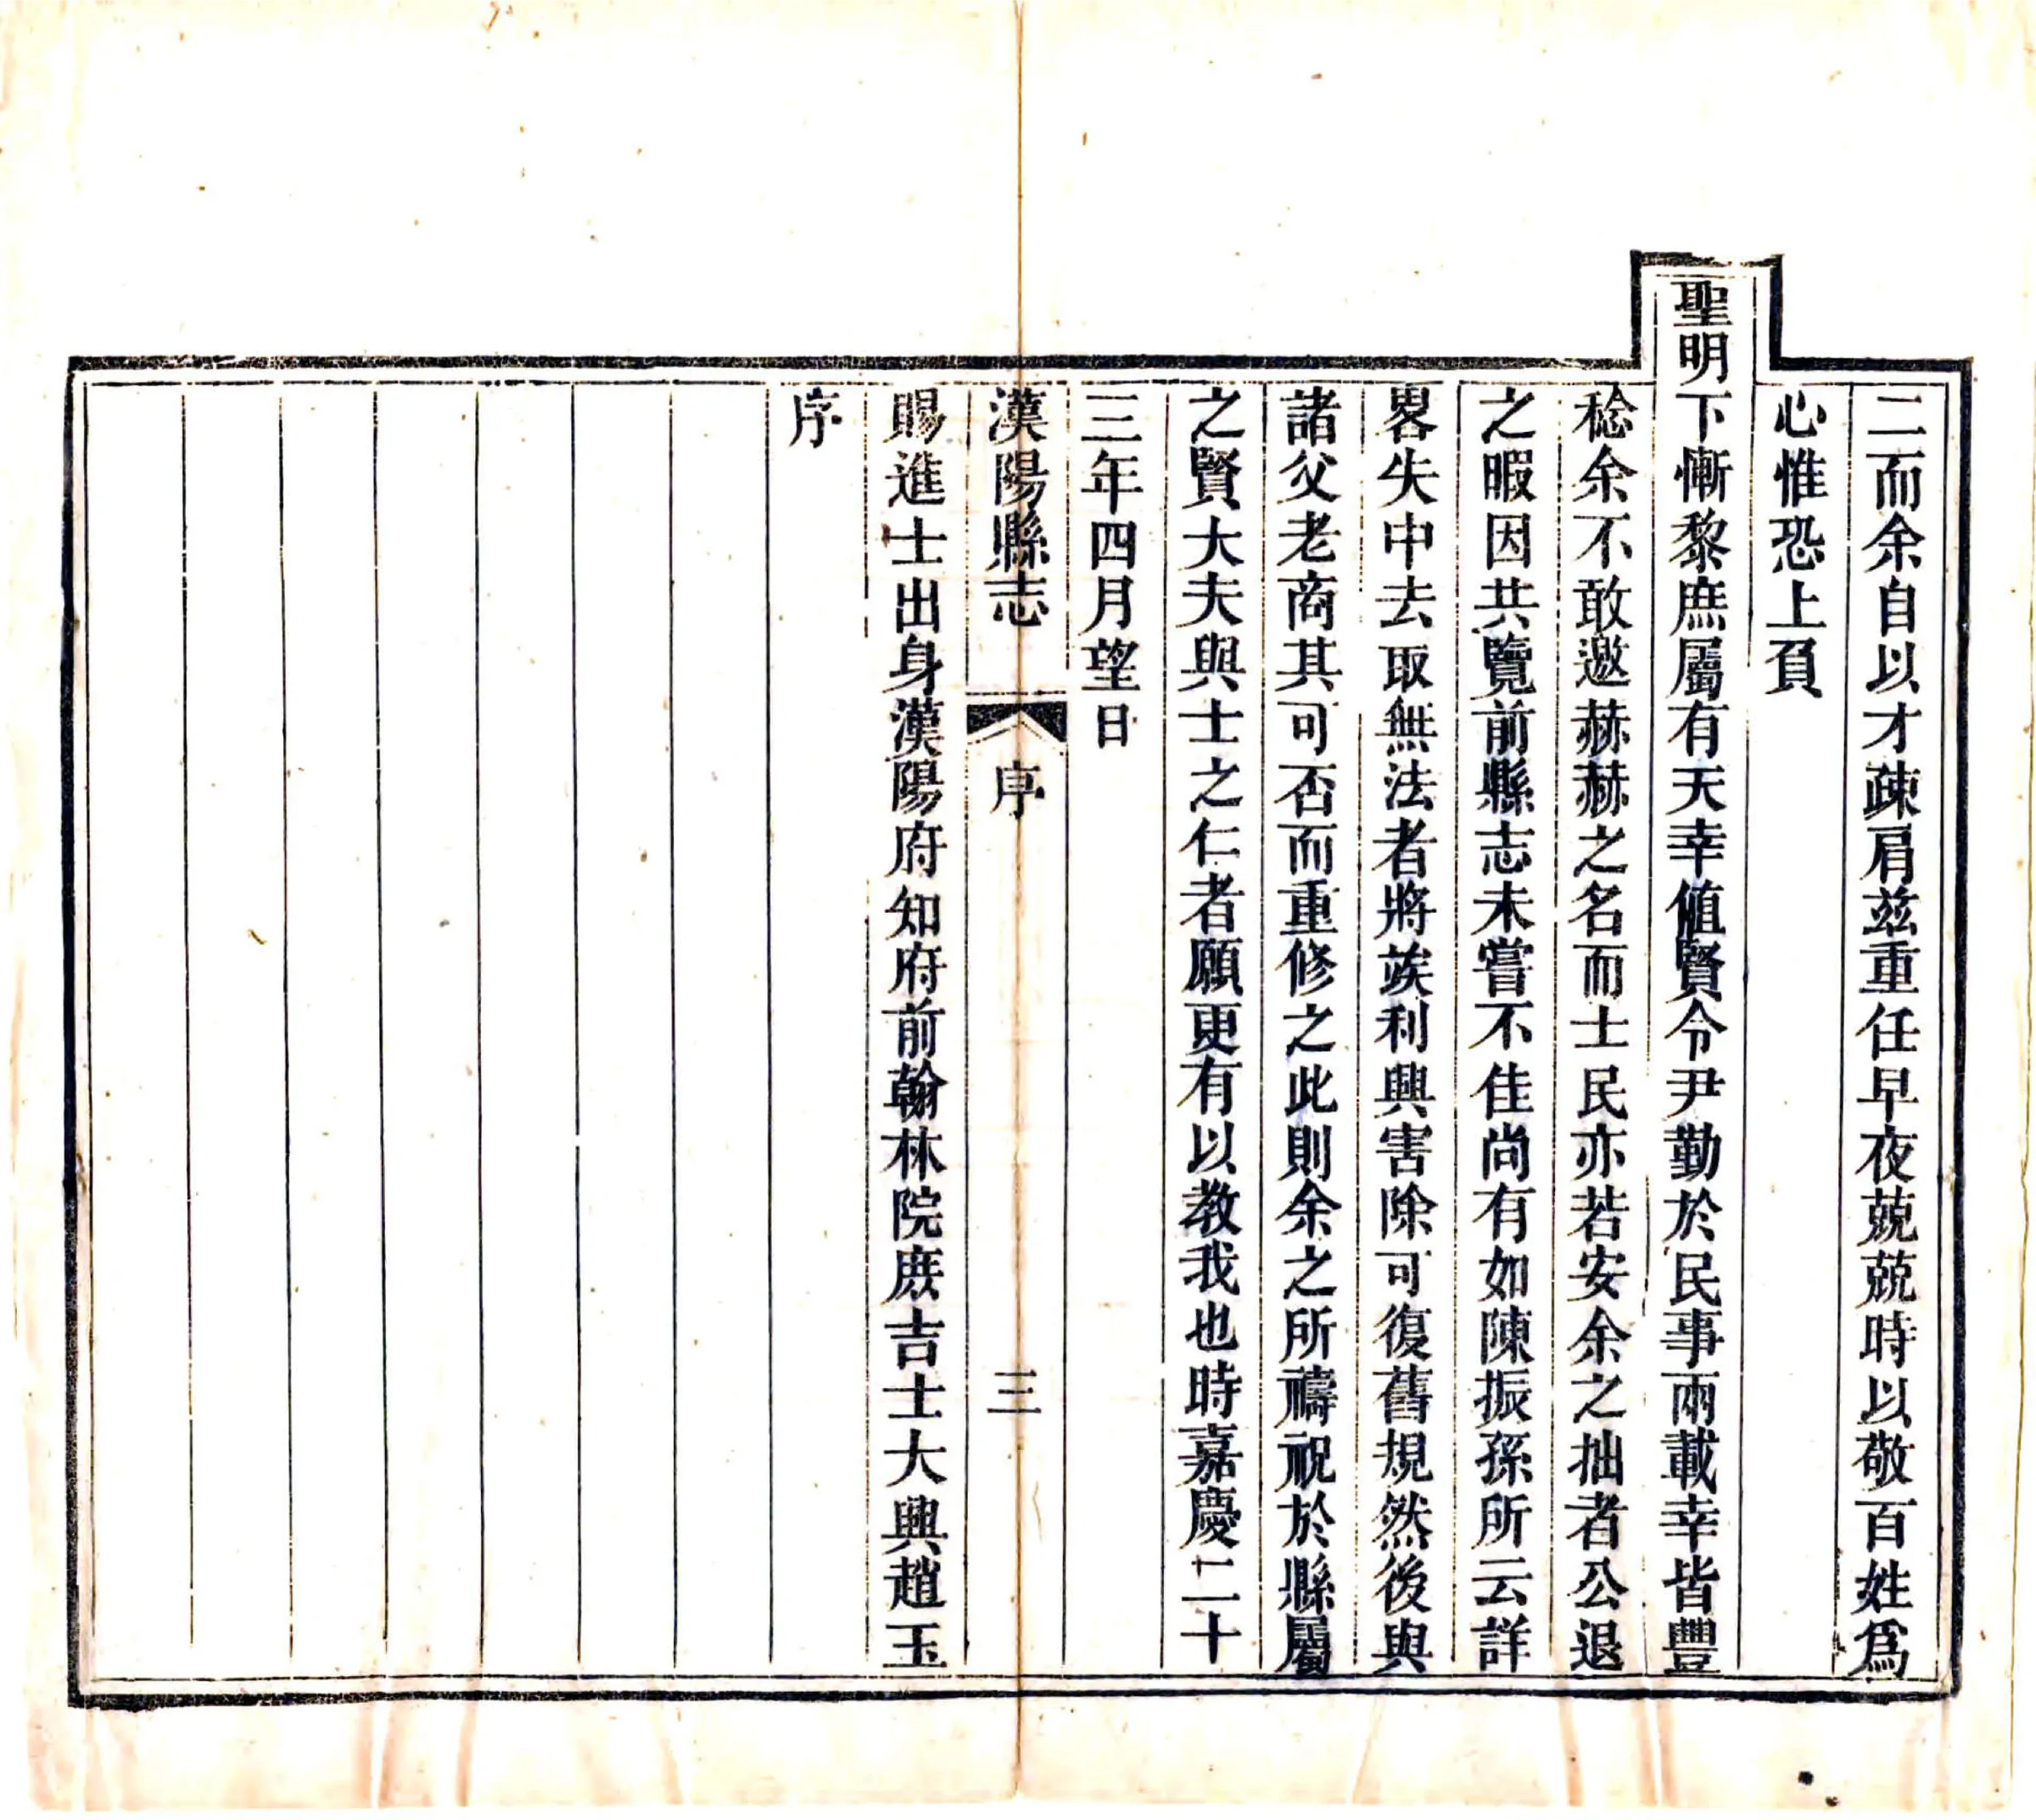 二而余自以才疎肩茲重任早夜兢兢時以敬百姓爲
心惟恐上負
聖明下慚黎庶屬有天幸値賢令尹勤於民事兩載幸皆豐
稔余不敢邀赫赫之名而士民亦若安余之拙者公退
之暇因共覽前縣志未嘗不佳尚有如陳振孫所云詳
畧失中去取無法者將俟利興害除可復舊規然後與
諸父老商其可否而重修之此則余之所禱祝於縣屬
之賢大夫與士之仁者願更有以教我也時嘉慶二十
三年四月望日
漢陽縣志 序 三
賜進士出身漢陽府知府前翰林院庶吉士大興趙玉
序